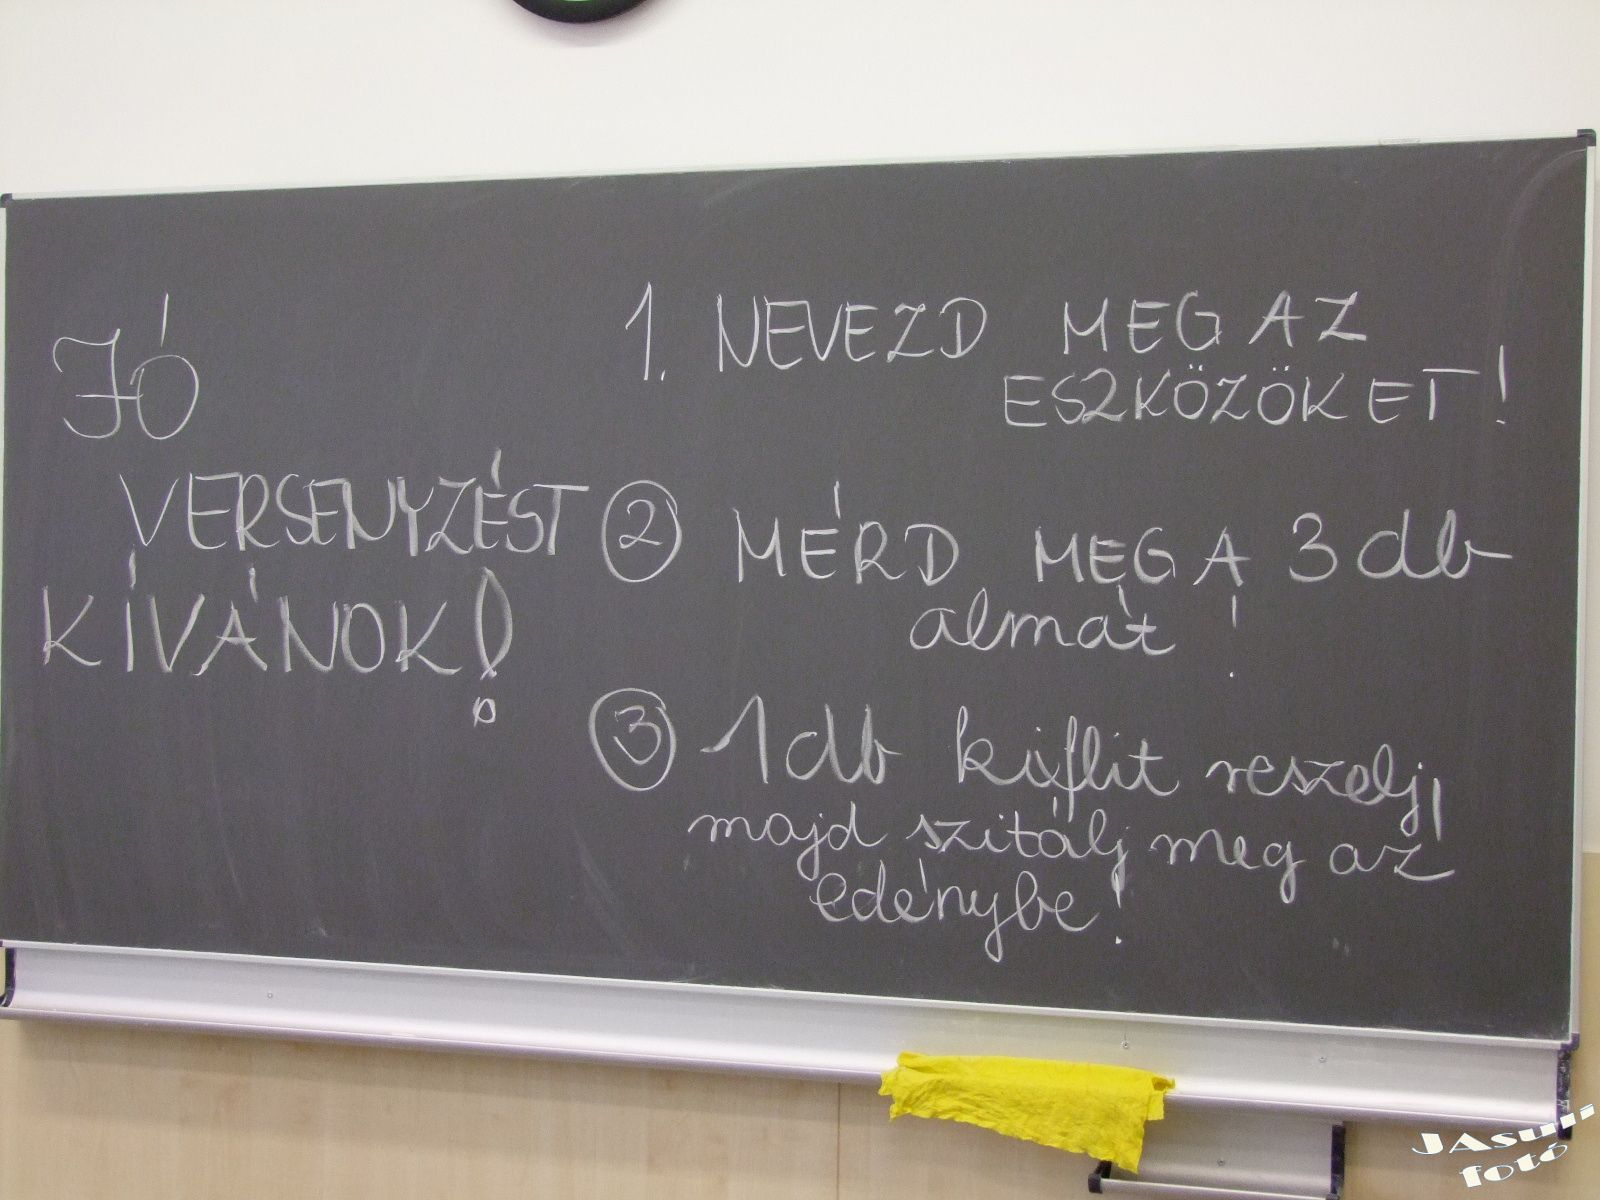 JÓ
VERSENYZÉST
KÍVÁNOK!
1. NEVEZD MEG AZ
ESZKÖZÖKET!
2 MÉRD MEG A 3 db
almát!
3 1 db kiflit reszelj,
majd szitálj meg az
edénybe!
JAsuli
fotó